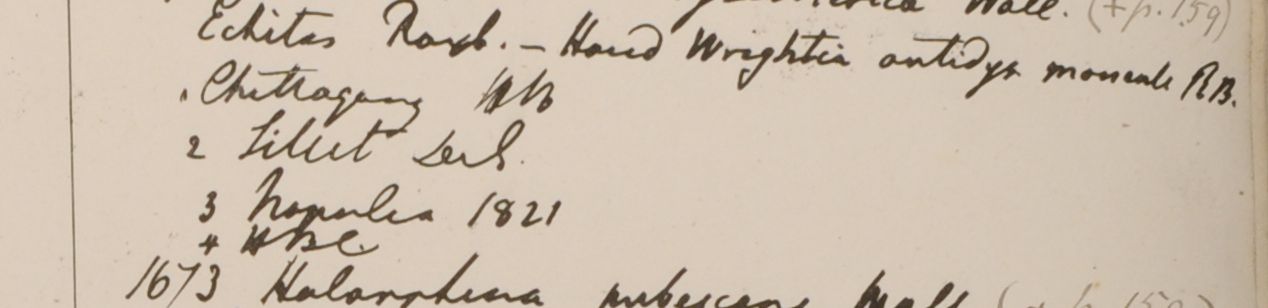 Wall. (+ p. 159)
Echites Roxb. — Haud Wrightia antidys monente RB.
1 Chittagong HB
2 Sillet
3 Napalia 1821
4 HBC.
1673 Holarrhena pubescens Wall